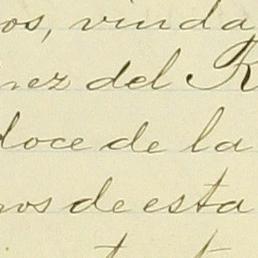 os, viuda
nez del R
doce de la
nos de esta